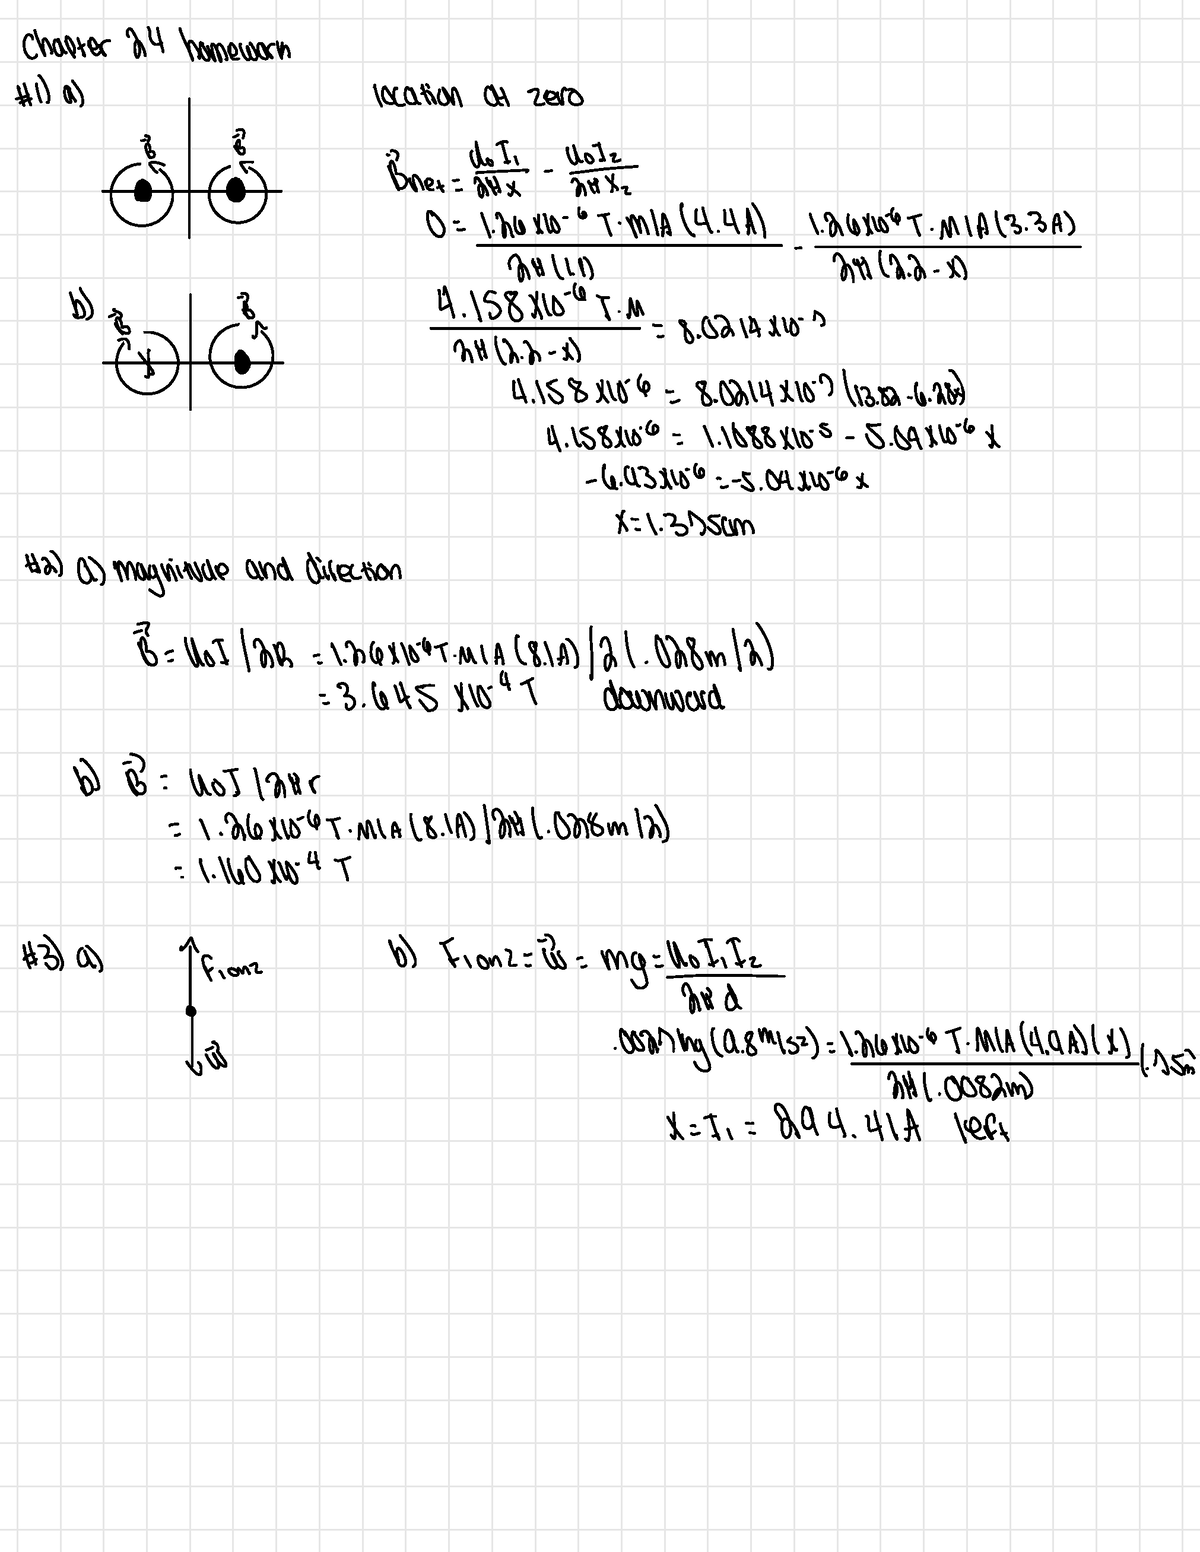 Chapter 24 homework
#1) a)
location at zero
B B
B⃗net = μ₀I₁/2πx - μ₀I₂/2πx₂
0 = 1.26x10⁻⁶ T·m/A (4.4A) / 2π(1.1) - 1.26x10⁻⁶ T·m/A (3.3A) / 2π(2.2-x)
b)
B B
4.158x10⁻⁶ T·m / 2π(2.2-x) = 8.0214x10⁻⁷
4.158x10⁻⁶ = 8.0214x10⁻⁷ (13.82-6.28x)
4.158x10⁻⁶ = 1.1088x10⁻⁵ - 5.04x10⁻⁶ x
-6.93x10⁻⁶ = -5.04x10⁻⁶ x
x = 1.375cm
#2) a) magnitude and direction
B⃗ = μ₀I/2R = 1.26x10⁻⁶ T·m/A (8.1A)/2(.028m/2)
= 3.645 x10⁻⁴ T downward
b) B⃗ = μ₀I/2πr
= 1.26x10⁻⁶ T·m/A (8.1A)/2π(.028m/2)
= 1.160x10⁻⁴ T
#3) a)
F₁on2
w⃗
b) F₁on2 = w⃗ = mg = μ₀I₁I₂ / 2πd
.0027kg (9.8m/s²) = 1.26x10⁻⁶ T·m/A (4.9A)(x) / 2π(.0082m) (.75m)
x = I₁ = 294.41A left